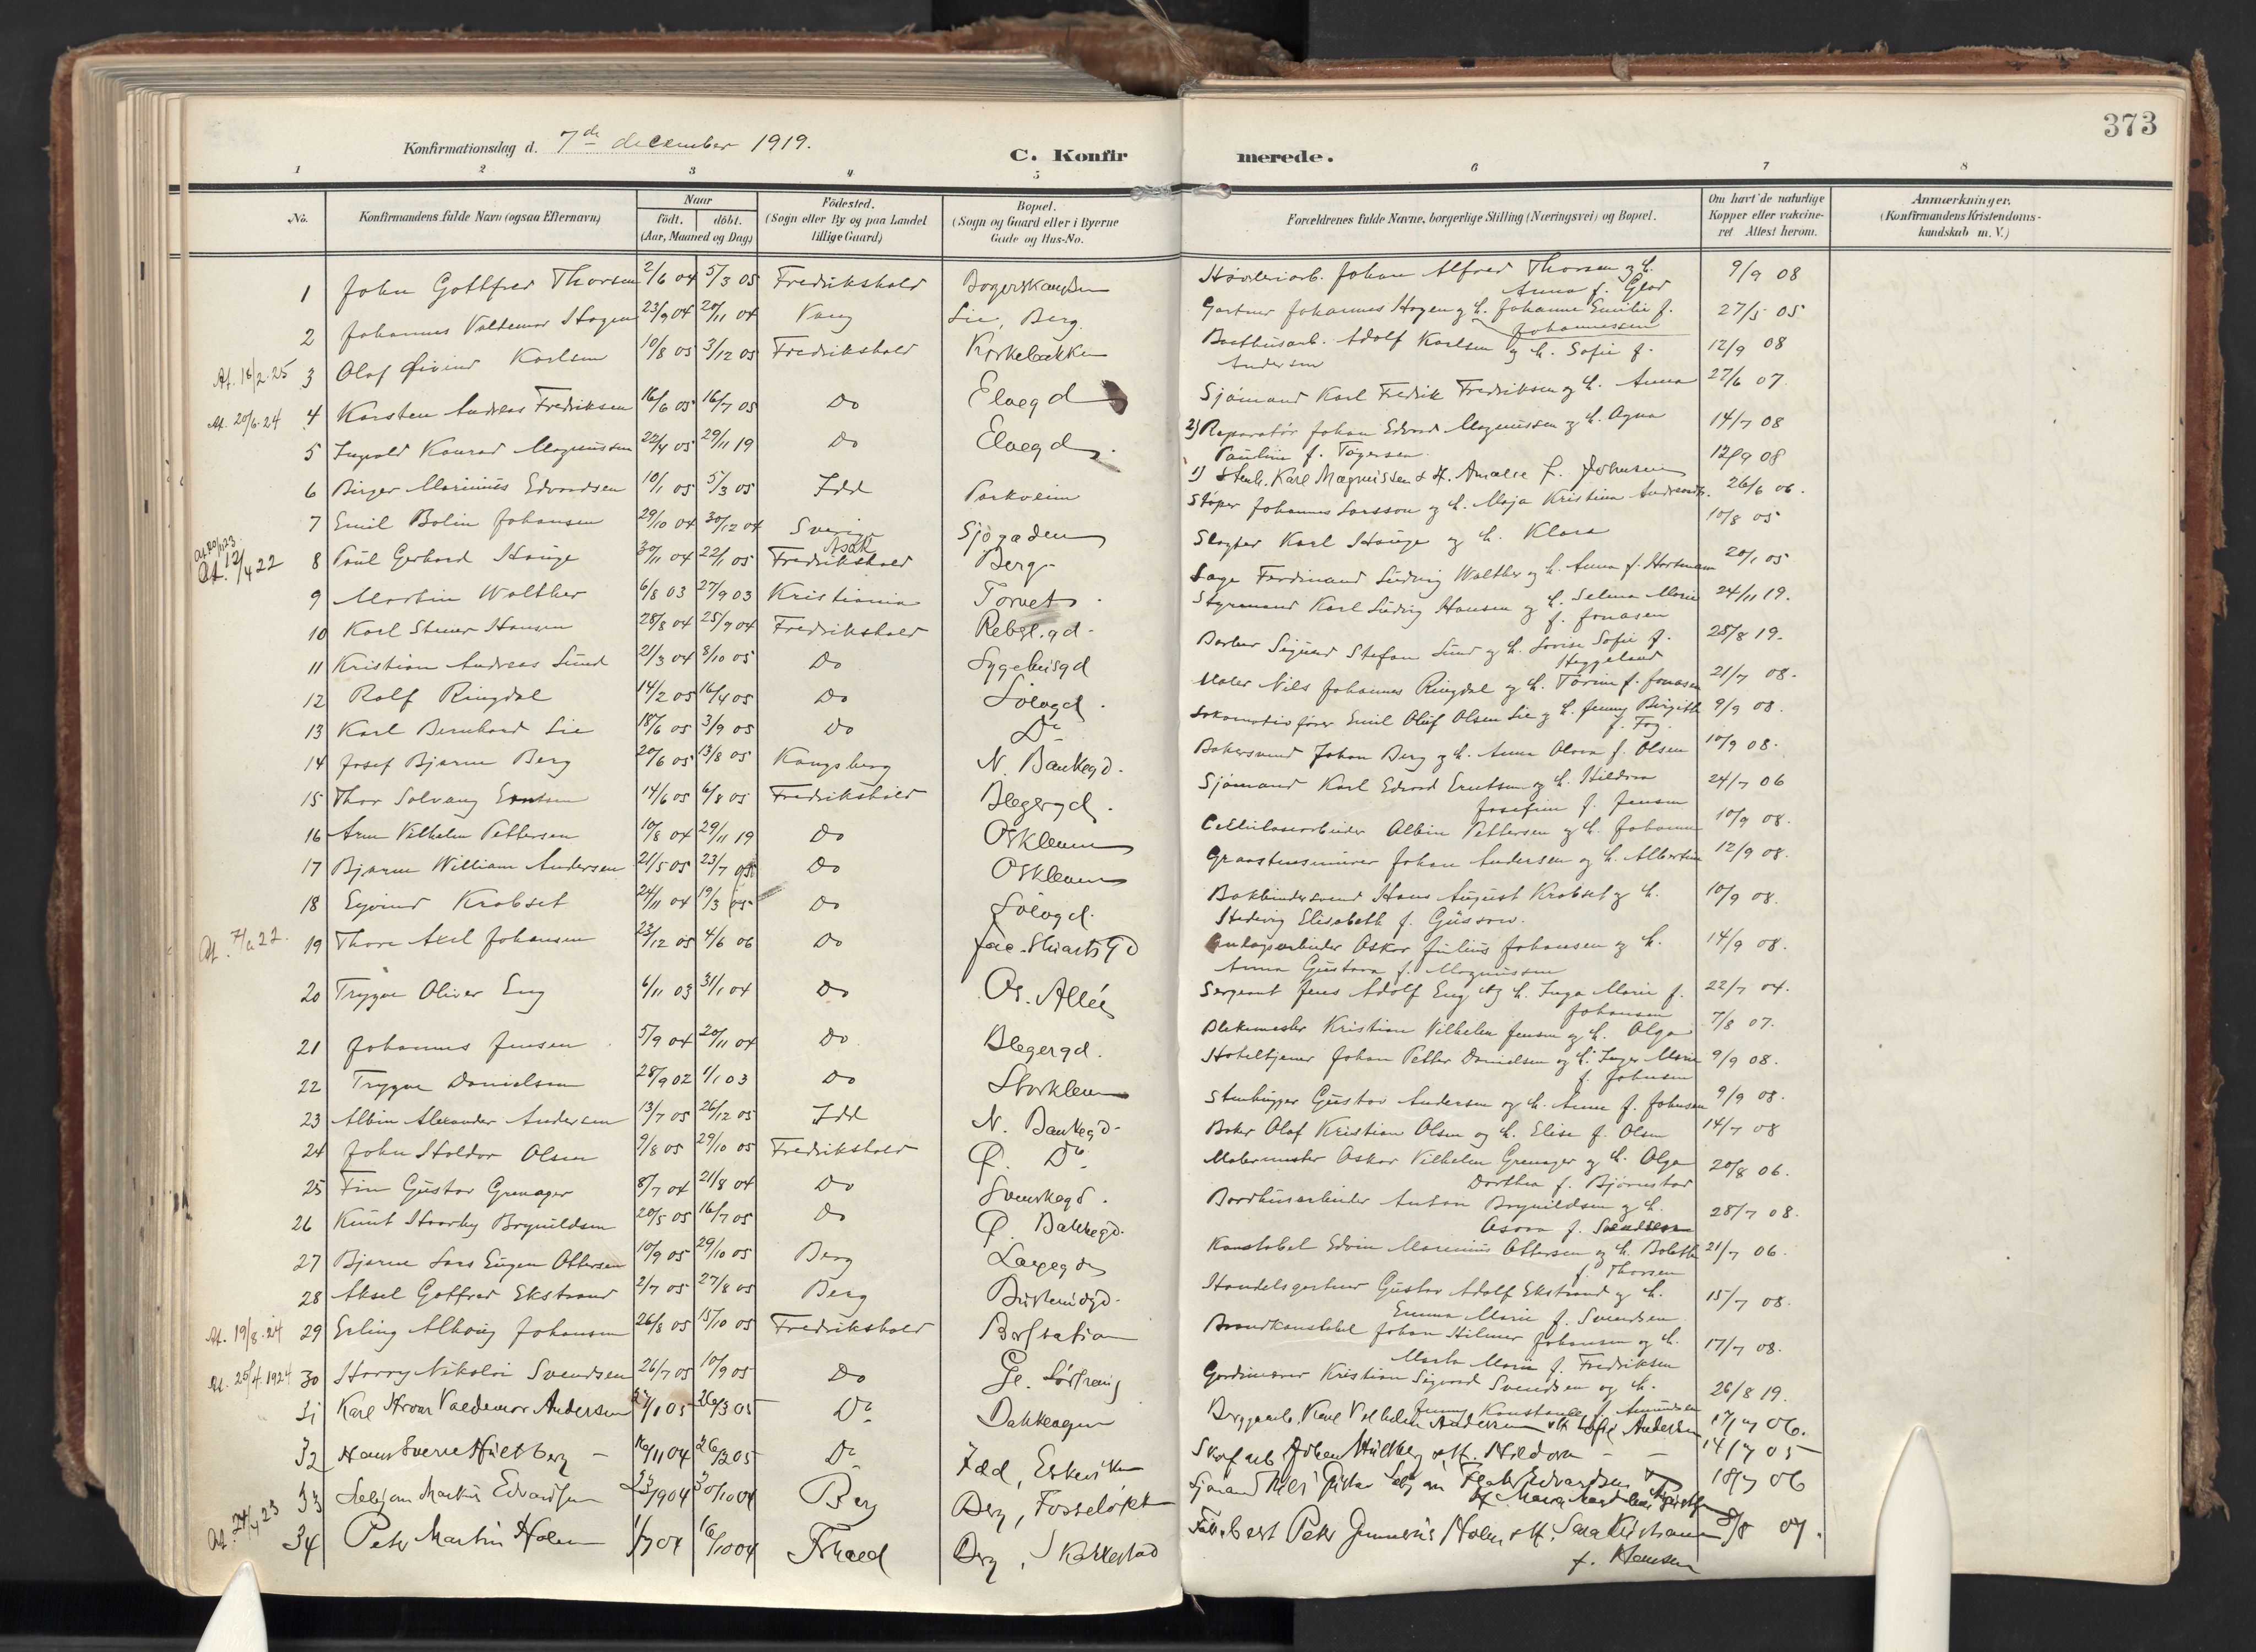 373
Konfirmationsdag d. 7de december 1919.
C. Konfirmerede.
1 2 3 4 5 6 7 8
No.
Konfirmandens fulde Navn (ogsaa Efternavn)
Naar
født. døbt.
(Aar, Maaned og Dag)
Fødested.
(Sogn eller By og paa Landet
tillige Gaard)
Bopæl.
(Sogn og Gaard eller i Byerne
Gade og Hus-No.
Forældrenes fulde Navne, borgerlige Stilling (Næringsvei) og Bopæl.
Om havt de naturlige
Kopper eller vakcine-
ret Attest herom.
Anmærkninger.
(Konfirmandens Kristendoms-
kundskab m. V.)
1 John Gottfred Thorsen 2/6 04 5/3 05 Fredrikshald Høvleriarb. Johan Alfred Thorsen og h. 9/9 08
Anna f. Glad
2 Johannes Valdemar Hagen 23/9 04 20/11 04 Vang Lie, Berg. Gartner Johannes Hagen og h. Johanne Emilie f. 27/5 05
Johannessen
At. 16/2.25 3 Olaf Øivind Karlsen 10/8 05 3/12 05 Fredrikshald Kirkebakken Adolf Karlsen og h. Sofie f. 12/9 08
Andersen
At. 20/6.24 4 Karsten Andreas Fredriksen 16/6 05 16/7 05 Do Elvegd Sjømand Karl Fredrik Fredriksen og h. Anna 27/6 07.
5 Ingvald Konrad Magnussen 22/4 05 29/11 19 Do Elvegd. 2) Reparatør Johan Edvard Magnussen og h. Agna 14/7 08
Pauline f. Tøgersen
6 Birger Marinius Edvardsen 10/1 05 5/3 05 Idd Parkveien 1) Stenh. Karl Magnussen & H. Amalie f. Johnsen 12/9 08
7 Emil Bolin Johansen 29/10 04 30/12 04 Sverige Sjøgaden Støper Johannes Larsson og h. Maja Kristina 26/6 06.
At. 12/4 22 8 Paul Gerhard Hauge 30/11 04 22/1 05 Asak Fredrikshald Berg Slagter Karl Hauge og h. Klara 10/8 05
9 Martin Walther 6/8 03 27/9 03 Kristiania Torvet Ferdinand Ludvig Walther og h. Anna f. Hartmann 20/1 05
10 Karl Stener Hansen 28/8 04 25/9 04 Fredrikshald Rebsl.gd. Styrmand Karl Ludvig Hansen og h. Selma Marie 24/11 19.
f. Jonasen
11 Kristian Andreas Lund 21/3 04 8/10 05 Do Sygehusgd Barber Sigurd Stefan Lund og h. Lovise Sofie f. 25/8 19.
Heggeland
12 Rolf Ringdal 14/2 05 16/4 05 Do Maler Nils Johannes Ringdal og h. Torine f. Jonasen 21/7 08.
13 Karl Bernhard Lie 18/6 05 3/9 05 Do Do Lokomotivfører Emil Oluf Olsen Lie og h. Jenny Birgitte 9/9 08.
14 Josef Bjarne Berg 20/6 05 13/8 05 Kongsberg N. Bankegd. Bakersvend Johan Berg og h. Anna Olava f. Olsen 10/9 08.
15 Thor Solvang Erntsen 14/6 05 6/8 05 Fredrikshald Blegergd. Sjømand Karl Edvard Erntsen og h. Hildora 24/7 06
Josefine f. Jensen
16 Arne Vilhelm Pettersen 10/8 04 29/11 19 Do Oskleven Cellulosearbeider Albin Pettersen og h. Johanne 10/9 08.
17 Bjarne William Andersen 21/5 05 23/7 05 Do Oskleven Graastensmurer Johan Andersen og h. Albertine 12/9 08.
18 Eyvind Krabset 24/11 04 19/3 05 Do Bokbindersvend Hans August Krabset og h. 10/9 08.
Hedevig Elisabeth f. Gussow.
At. 22. 19 Thore Axel Johansen 23/12 05 4/6 06 Do Oskar Julius Johansen og h. 14/9 08.
Anna Gustava f. Magnussen
20 Trygve Oliver Eng 6/11 03 31/1 04 Do Os. Allée Sergeant Jens Adolf Eng og h. Inga Marie f. 22/7 04.
Johansen
21 Johannes Jensen 5/9 04 20/11 04 Do Blegergd. Blekemester Kristian Vilhelm Jensen og h. Olga 7/8 07.
22 Trygve Danielsen 28/9 02 1/1 03 Do Storkleven Hoteltjener Johan Petter Danielsen og h. Inger Marie 9/9 08.
f. Johnsen
23 Albin Alexander Andersen 13/7 05 26/12 05 Idd N. Bankegd. Stenhugger Gustav Andersen og h. Anna f. Johnsen 9/9 08.
24 John Haldor Olsen 9/8 05 29/10 05 Fredrikshald Ø. Do Baker Olaf Kristian Olsen og h. Elise f. Olsen 14/7 08
25 Fin Gustav Grenager 8/7 04 21/8 04 Do Svenskegd. Malermester Oskar Vilhelm Grenager og h. Olga 20/8 06.
Dorthea f. Bjørnstad
26 Knut Haarby Brynildsen 20/5 05 16/7 05 Do Ø. Bakkegd. Bordhusarbeider Anton Brynildsen og h. 28/7 08.
Asora f. Svendsen
27 Bjarne Lars Eugen Ottersen 10/9 05 29/10 05 Berg Konstabel Edvin Marinius Ottersen og h. Bolette 21/7 06.
f. Thorsen
28 Aksel Gotfred Ekstrand 2/7 05 27/8 05 Berg Handelsgartner Gustav Adolf Ekstrand og h. 15/7 08.
Emma Marie f. Svendsen
At. 19/8.24 29 Erling Alhovig Johansen 26/8 05 15/10 05 Fredrikshald Brandkonstabel Johan Hilmer Johansen og h. 17/7 08.
Marta Marie f. Fredriksen
At. 25/4.1924 30 Harry Nikolai Svendsen 26/7 05 10/9 05 Do Kristian Sigvard Svendsen og h. 26/8 19.
Jenny Konstance f. Amundsen
31 Karl Hroar Valdemar Andersen 26/3 05 Do Bakkeagen Bryggearb. Karl Vilhelm Andersen & H. Sofie Andersen 17/7 06.
32 Hans Sverre Hultberg 16/11 04 26/2 05 Do Idd, Eskeviken Skofarb Johan Hultberg & H. Hildora 14/7 05
33 Markus Edvardsen 23/9 04 30/10 04 Berg Berg, Fosseløkke 18/7 06
At. 24/4 23 34 Peter Martin Holm 1/7 04 16/10 04 Frhald Berg, Kakkestad Peter Gunnerius Holm & H. Sara Kristiane 8/8 07.
f. Hansen